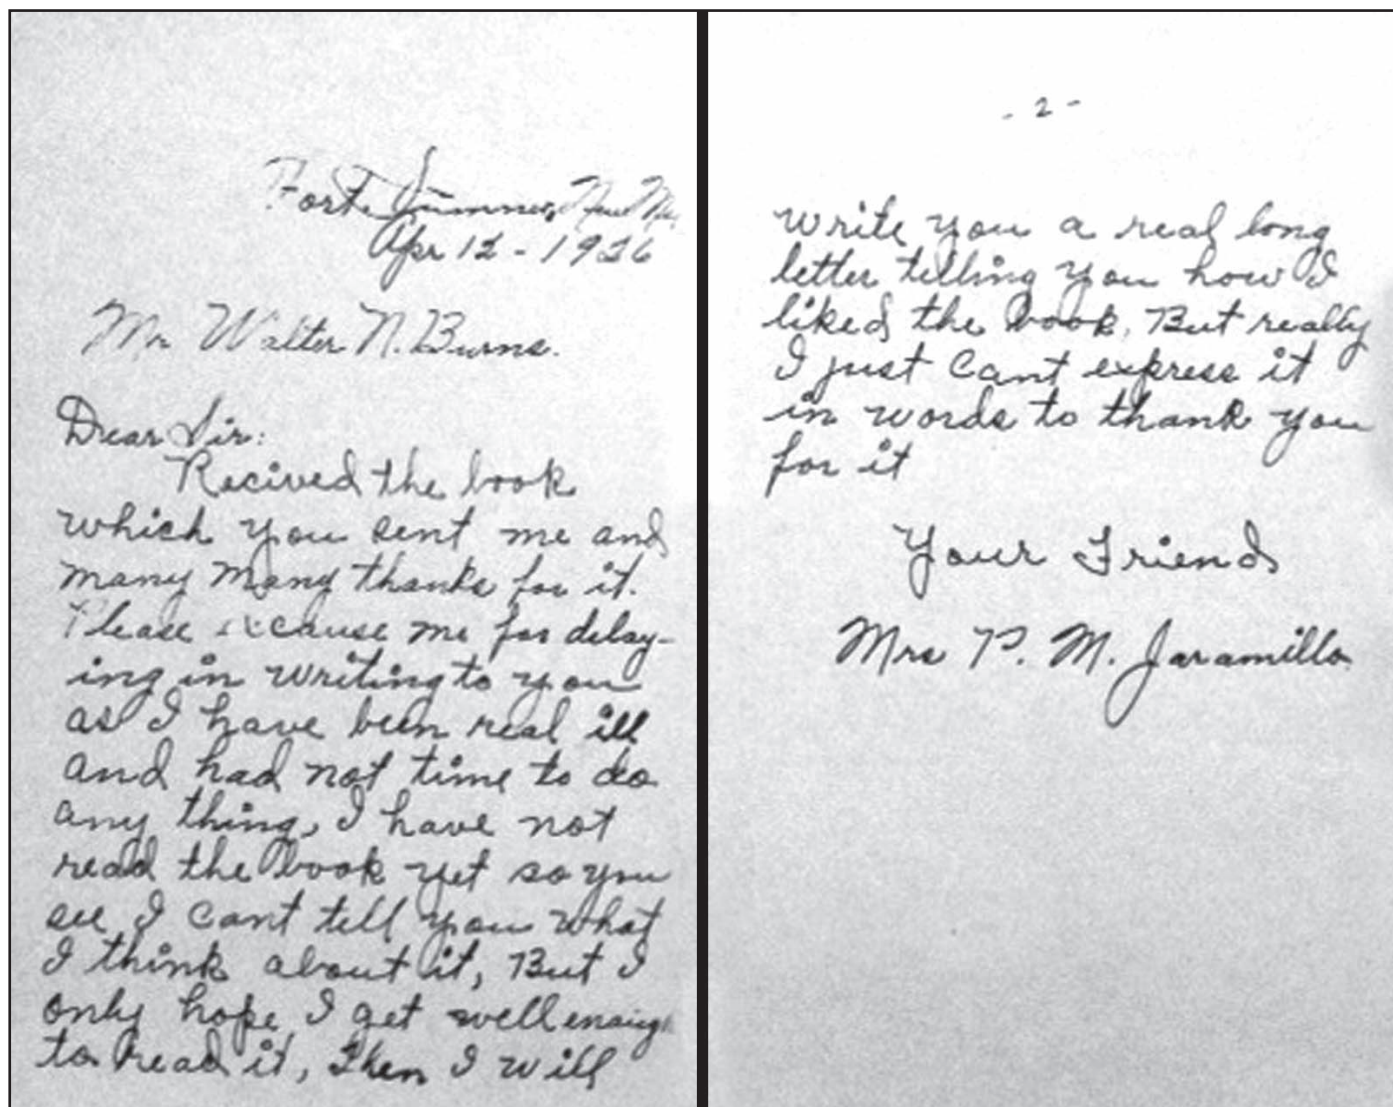 Fort Sumner, New Mex
Apr 12 - 1926
Mr Walter N. Burns.
Dear Sir:
Recived the book
which you sent me and
many many thanks for it.
Please excause me for delay-
ing in writing to you
as I have been real ill
and had not time to do
any thing, I have not
read the book yet so you
see I cant tell you what
I think about it, But I
only hope I get well enough
to read it, then I will
- 2 -
write you a real long
letter telling you how I
liked the book, But really
I just cant express it
in words to thank you
for it
Your Friend
Mrs P. M. Jaramillo